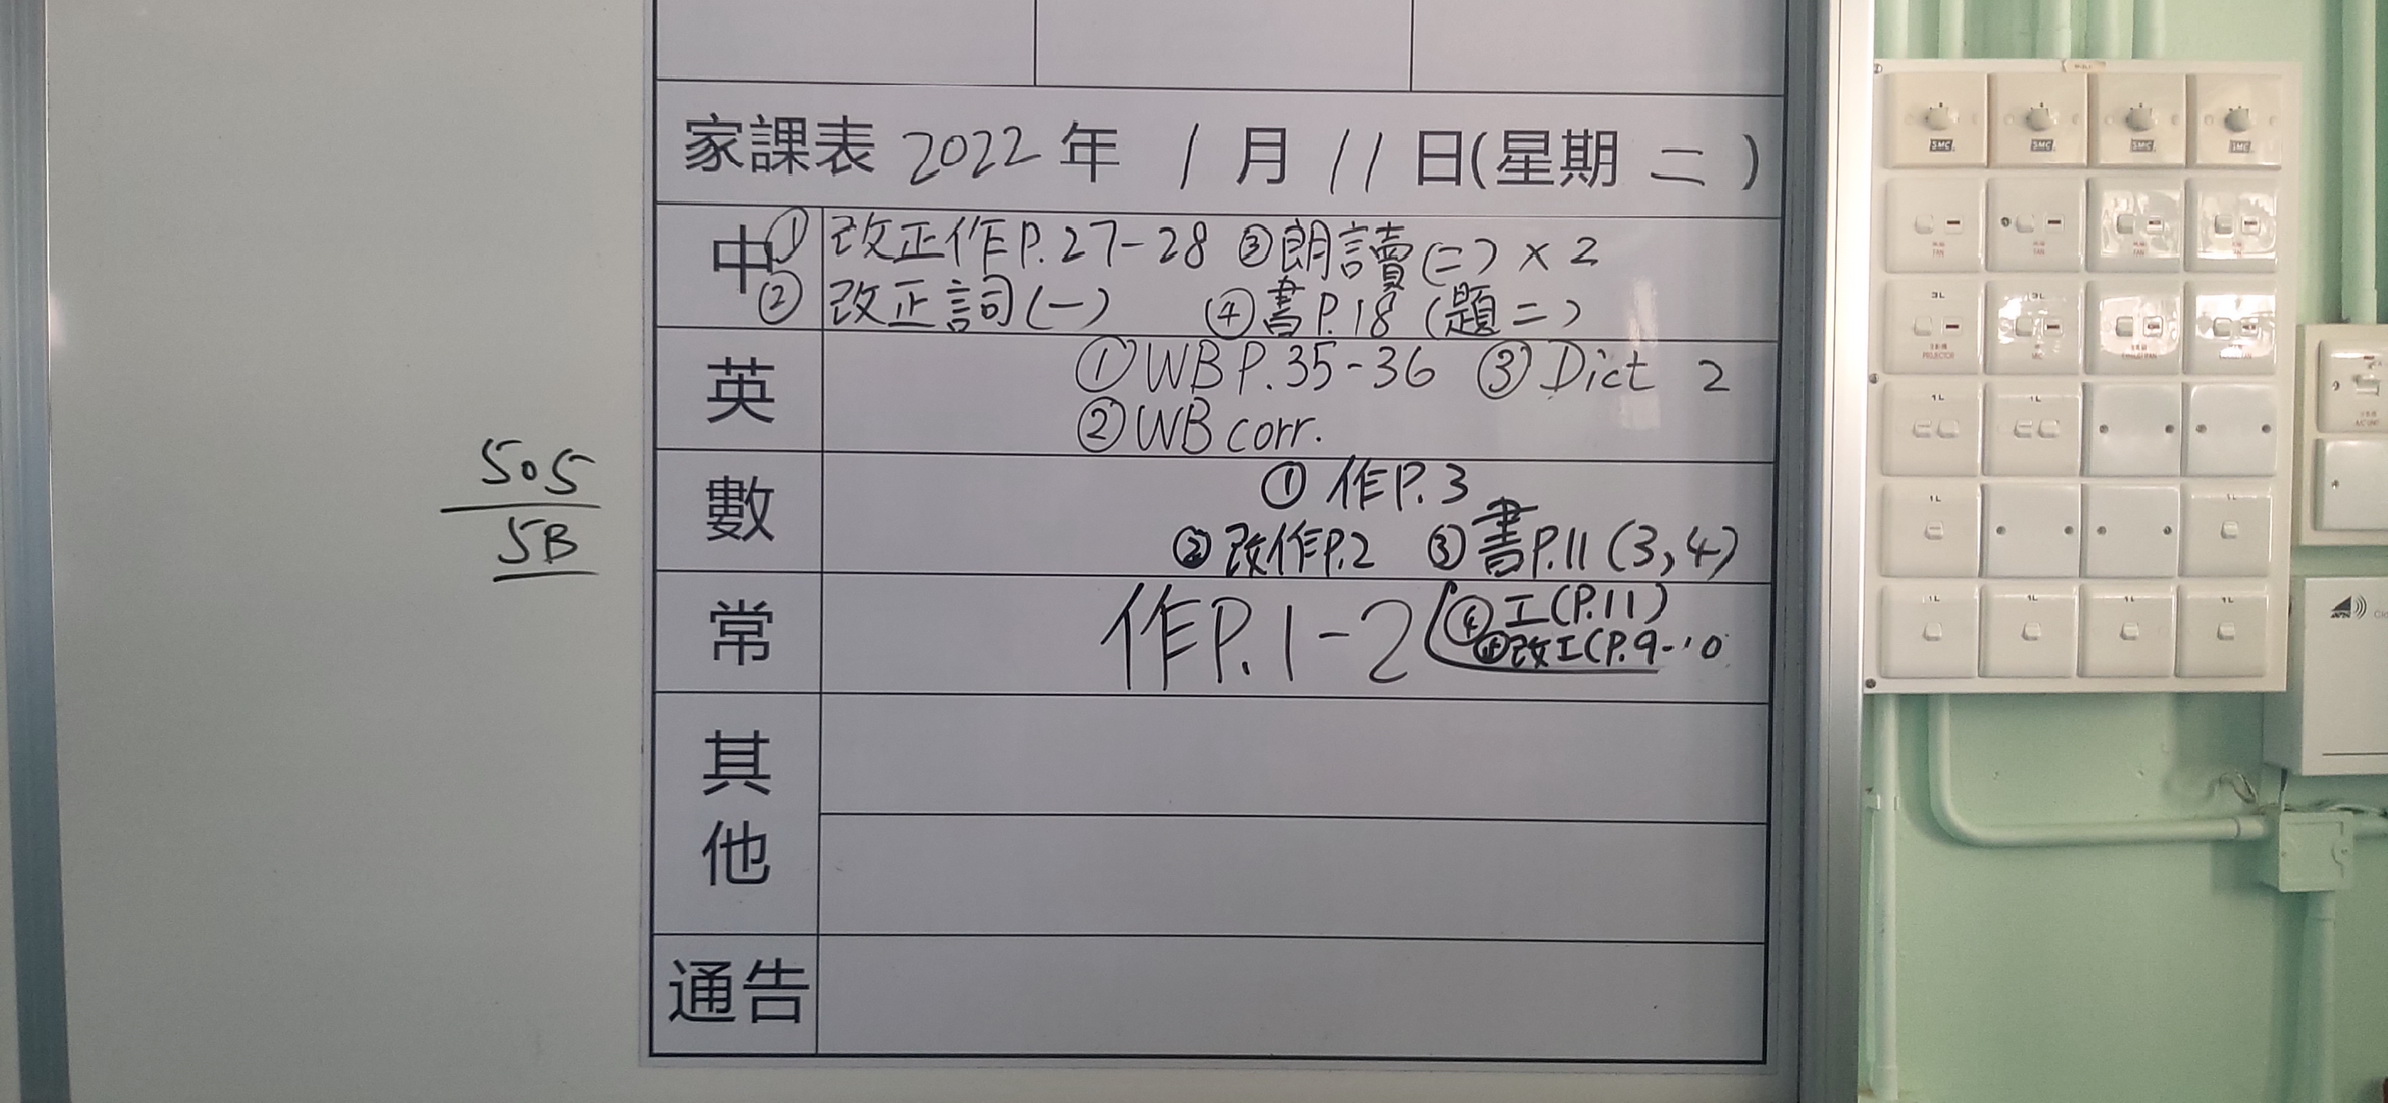 家課表 2022 年 1 月 11 日(星期 二 )
中
① 改正作P.27-28 ③朗讀(二) × 2
② 改正詞(一) ④書P.18 (題二)
英
① WB P.35-36 ③ Dict 2
② WB corr.
數
① 作P.3
② 改作P.2 ③ 書P.11 (3,4)
④ 工(P.11)
⑤改工(P.9-10
常
作P.1-2
其他
通告
505
5B
SMC SMC SMC SMC
FAN FAN FAN FAN
3L 3L
PROJECTOR
1L 1L
1L 1L
1L 1L 1L 1L